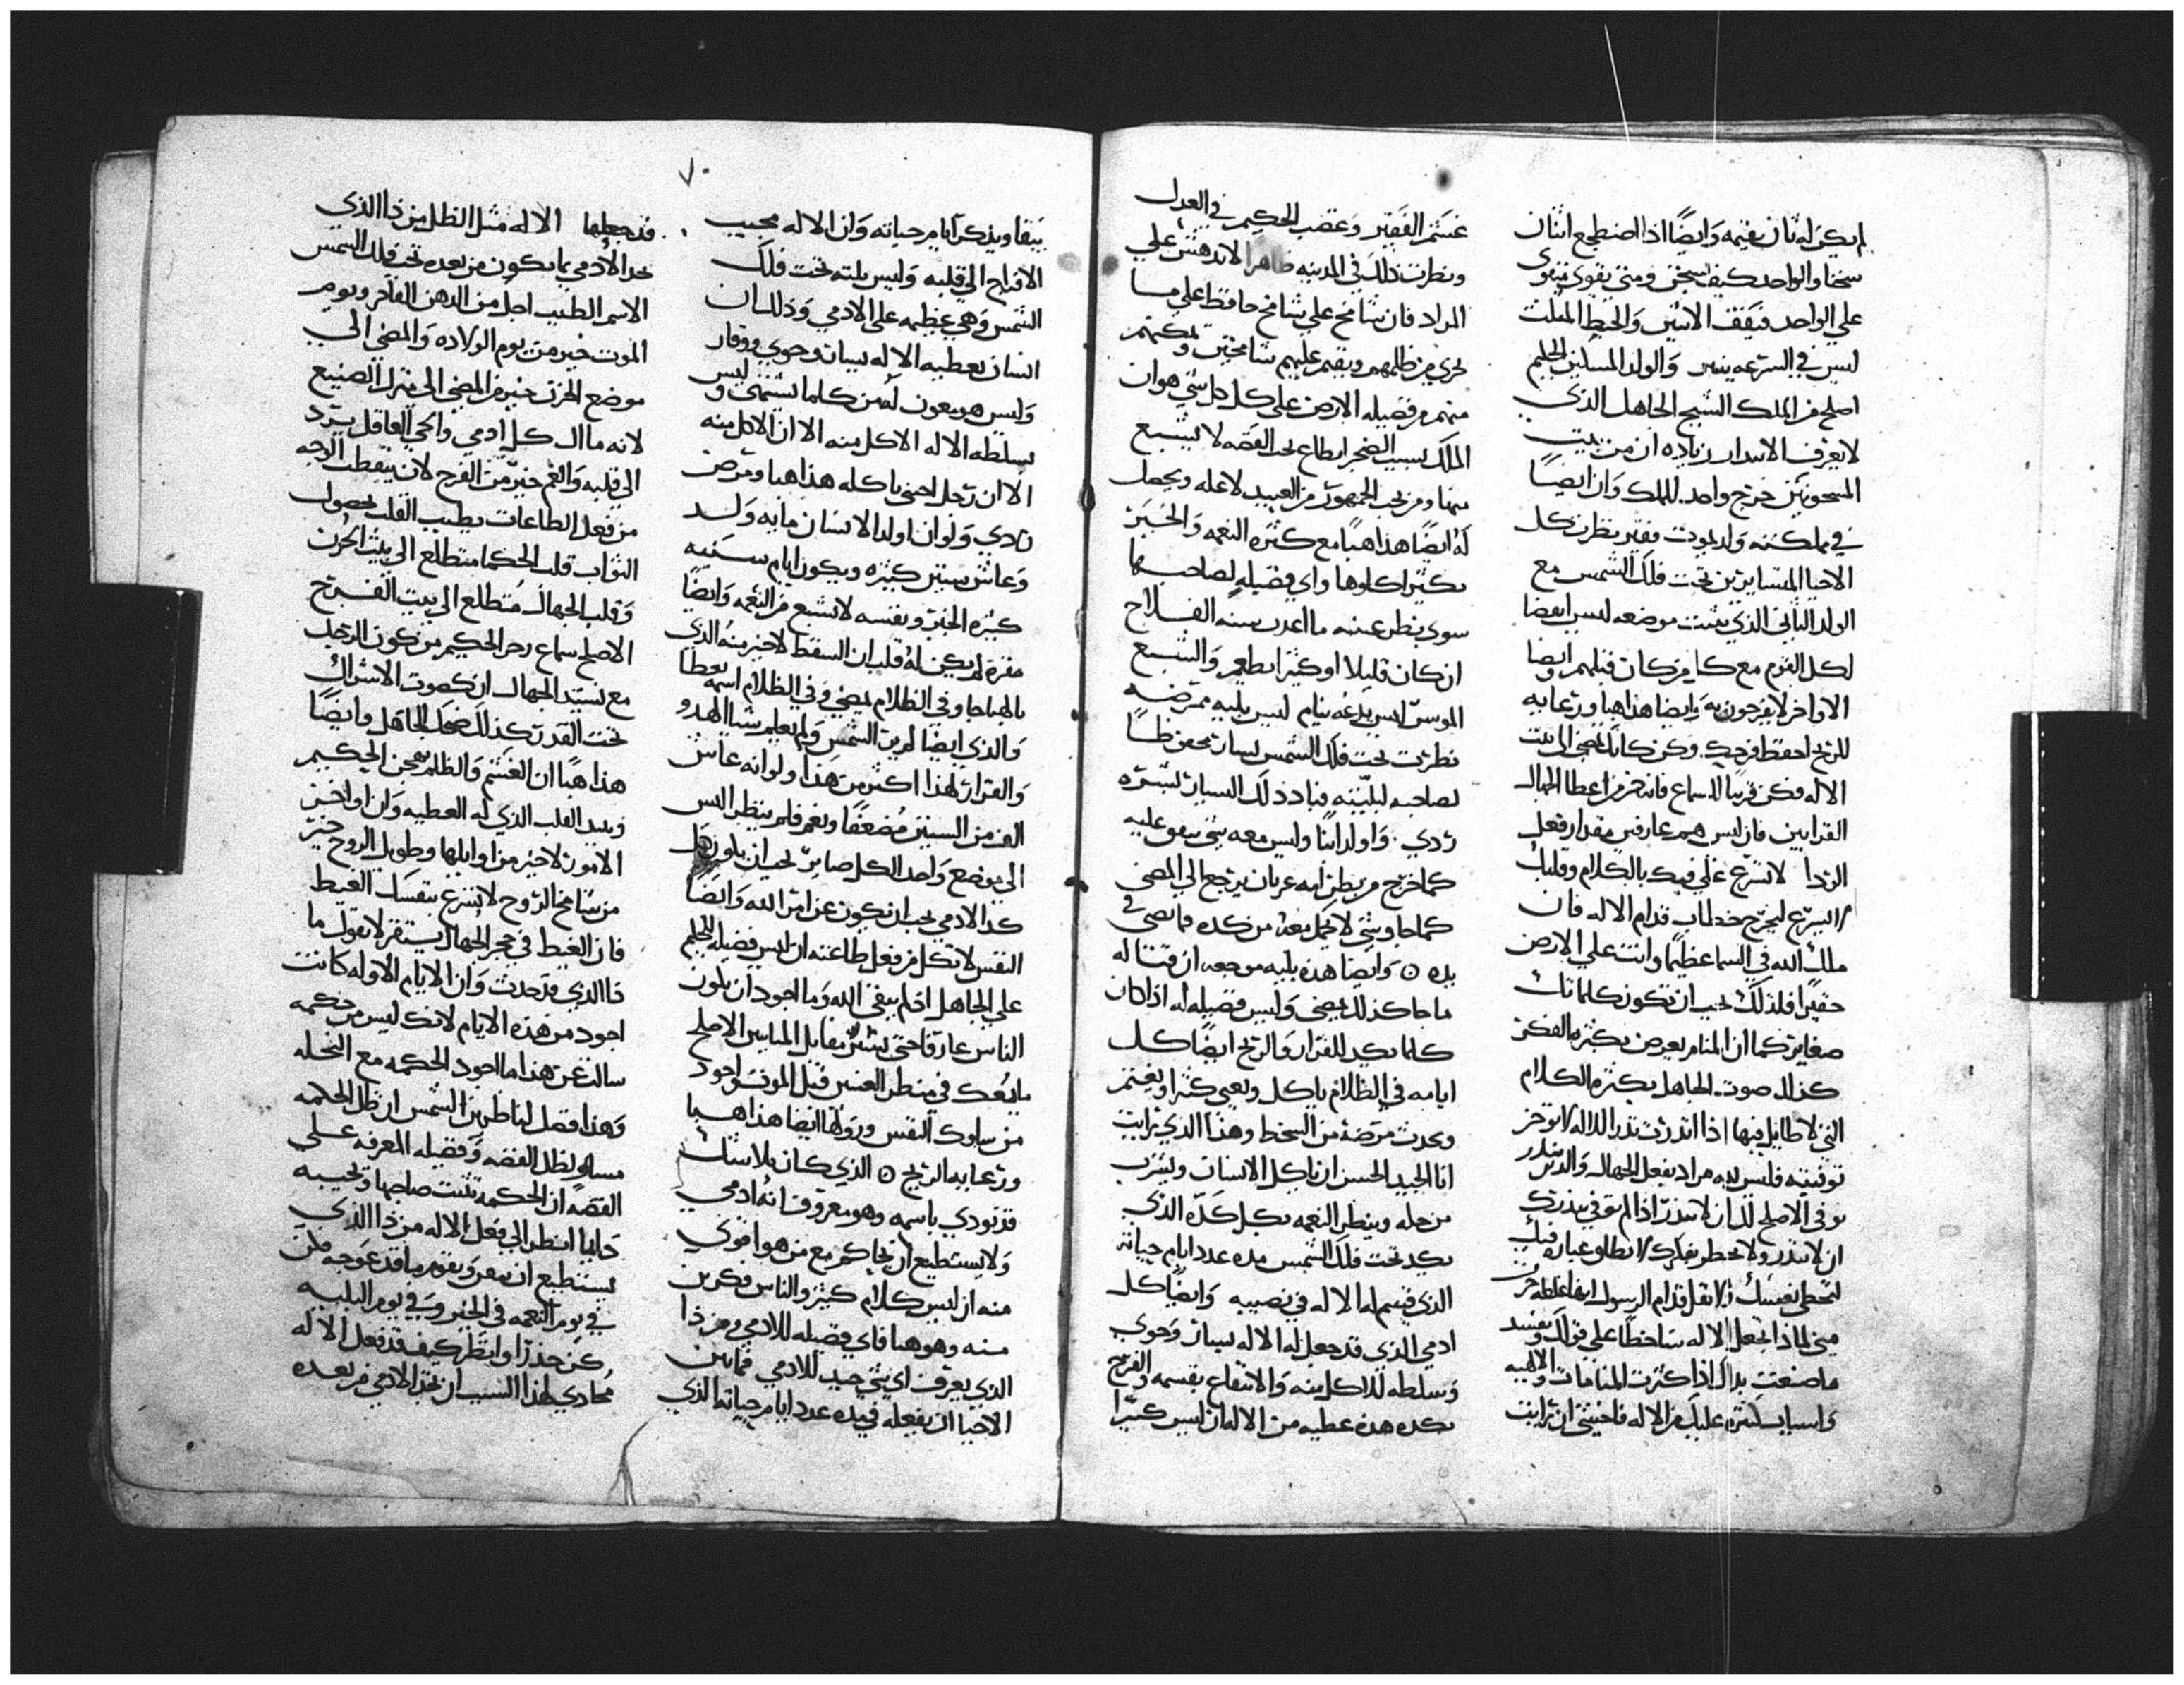 لم يكن له ثان يقيمه وَايضًا اذا اضطجع اثنان
سخنا والواحد كيف يسخن ومتى يقوى متقوى
على الواحد فيقف الاثنين والخيط المثلث
ليس في السرعه ينبتر والولد المسكين الحكيم
اصلح من الملك الشيخ الجاهل الذي
لا يعرف الاستدار زياده ان من بيت
المسجونين خرج واحد للملك وَان ايضًا
في مملكته ولد بموت فقير نظرت كل
الاحيا المتسايرين تحت فلك الشمس مع
الولد الثاني الذي يثبت موضعه ليس انقضا
لكل القوم مع كل من كان قبلهم وايضا
الاواخر لا يفرحون به وايضا هذا هبا ورعايه
للريح احفظ قدميك وكن كانك تمضي الى بيت
الاله فكن قريبًا للسماع فانه خير من اعطا الجهال
القرابين فان ليس هم عارفين مقدار فعل
الردا لا تسرع على فمك بالكلام وقلبك
لا يسرع ليخرج خطاب قدام الاله فان
ملك الله في السما عظيمًا وانت على الارض
حقيرًا فلذلك يجب ان تكون كلماتك
صغايرة كما ان المنام يعرض بكثره الفكر
كذلك صوت الجاهل بكثره الكلام
التي لا طايل فيها اذا انذرت نذر الله لا توخر
توفيته فليس لله مراد بفعل الجهال والذي تنذر
توفي الاصلح لك ان لا تنذر اذا لم توفي بنذرك
ان لا تنذر ولا تخطر بفكرك لا تطلق عباره فيك
لتخطي نفسك ولا تقل قدام الرسول انها غلطه جرت
مني لماذا تجعل الاله ساخطًا على قولك ويفسد
ما صنعت يداك اذا كثرت المنامات والاهبيه
واسباب كثيره عليك من الاله فاخشى ان رايت
غشم الفقير وغضب الحكم في العدل
ونظرت ذلك في المدينه ظاهرًا لا تدهش على
المراد فان شامخ على شامخ حافظ على ما
يجري من ظلمهم ويقيم عليهم شامخين
منهم من فضيله الارض على كل حال شي هوان
الملك بسبب الضجر يطاع محب الفضه لا يشبع
منها ومن يحب الجمهور من العبيد لا غله ويجعل
له ايضًا هذا هبًا مع كثره النعمه والخير
يكثر اكلوها واي فضيله لصاحبها
سوى ينظر عينه ما اعذب سنه الفلاح
ان كان قليلا او كثيرا يطعم وَالشبع
الموسر ليس يدعه ينام ليس بليه ممرضه
نظرت تحت فلك الشمس يسار محفوظًا
لصاحبه لبليته فباد ذلك اليسار بشره
ردي وَاولد ابنًا وليس معه شي يبقي عليه
كما خرج من بطن امه عريان يرجع الى المضي
كما جا وشي لا يحمل معه من كده فامضي في
يده ٥ وَايضا هذه بليه موجعه ان قتاله
ما جا كذلك يمضي وَليس فضيله له اذا كان
كلما يكد للقرار والريح ايضًا كل
ايامه في الظلام ياكل ويعيى كثيرا ويغتم
ويحدث مرضه من السخط وهذا الذي رايت
انا الجيد الحسن ان ياكل الانسان ويشرب
من حله وينظر النعمه بكل كده الذي
يكد تحت فلك الشمس مده عدد ايام حياته
الذي قسم له الاله في نصيبه وَايضًا كل
ادمي الذي قد جعل له الاله يسار وحوي
وسلطه للاكل منه والانتفاع بقسمه والفرح
بكده هذه عطيه من الاله ان ليس كثيرًا
٧٠
يبقا ويذكر ايام حياته وَان الاله مجيب
الافراح الى قلبه وَليس بليته تحت فلك
الشمس وهي عظيمه على الادمي وَذلك ان
انسان يعطيه الاله يسار وحوي ووقار
وليس هو يعون له من كلما تشتهي وليس
يسلطه الاله الاكل منه الا ان الاكل منه
الا ان رجل اجنبي ياكله هذا هبا ومرض
ردي وَلو ان اولد الانسان مايه ولد
وعاش سنين كثيره ويكون ايام سنيه
كثيره الخير ونفسه لا تشبع من النعمه وَايضًا
مقبره لم يكن له قلت ان السقط لاخير منه الذي
بالهبا جا وفي الظلام يمضي وفي الظلام اسمه يغطا
والذي ايضا لم ير الشمس ولم يعلم شيا الهدو
والقرار لهذا اكثر من هذا ولو انه عاش
الف من السنين مضعفًا ونعم فلم ينظر اليس
الى موضع واحد الكل صاير يجب ان يكون كل
كد الادمي يجب ان يكون عن امر الله وايضًا
النفس لا تكل من فعل طاعته ان ليس فضيله للحكيم
على الجاهل اذ لم يتقي الله وما اجود ان يكون
الناس عارفًا حتى يشير مقابل المنابس الاصلح
ما يعك في منظر العينين قبل الموت اجود
من سلوك النفس وزوالها ايضا هذا هبا
ورعايه الريح ٥ الذي كان بلا شك
قد نودي باسمه وهو معروف انه ادمي
ولا يستطيع ان يحاكم مع من هو اقوى
منه ان ليس كلام كثير والناس مكرين
منه وهو هبا فاي فضيله للادمي ومن ذا
الذي يعرف اي شي جيد للادمي فما بين
الاحيا ان يفعله في مده عدد ايام حياته الذي
قد جعلها الاله مثل الظل من ذا الذي
يخبر الادمي بما يكون من بعده تحت فلك الشمس
الاسم الطيب اجل من الدهن الفاخر ويوم
الموت خير من يوم الولاده والمضي الى
موضع الحزن خير من المضي الى منزل الصنيع
لانه مآل كل ادمي والحي العاقل يرد
الى قلبه وَالغم خير من الفرح لان بتقطب الوجه
من فعل الطاعات يطيب القلب بحصول
الثواب قلب الحكما متطلع الى بيت الحزن
وَقلب الجهال متطلع الى بيت الفرح
الاصلح سماع زجر الحكيم من كون الرجل
مع نشيد الجهال ان كصوت الاشواك
تحت القدر كذلك ضحك الجاهل وايضًا
هذا هبًا ان الغشم والظلم يهجن الحكيم
ويبيد القلب الذي له العطيه وان اواخر
الامور لاخير من اوايلها وطويل الروح خير
من شامخ الروح لا تسرع بنفسك الغيظ
فان الغيظ في حجر الجهال يستقر لا تقول ما
ذا الذي قد حدث وَان الايام الاوله كانت
اجود من هذه الايام لانك ليس من حكمه
سالت عن هذا ما اجود الحكمه مع النحله
وهذا فضل لناظرين الشمس ان ظل الحكمه
مساو لظل الفضه وفضيله المعرفه على
الفضه ان الحكمه تثبت صاحبها وتحييه
دايما انظر الى فعل الاله من ذا الذي
يستطيع ان يقوم ما قد عوجه كن
في يوم النعمه في الخير وَفي يوم البليه
كن حذرًا وانظر كيف قد فعل الاله
محاذي لهذا السبب ان يجد الادمي من بعده